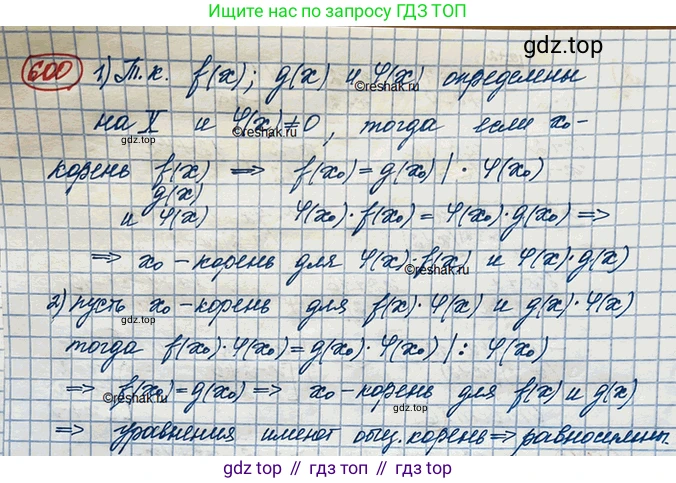 Ищите решения по запросу ГДЗ ТОП
gdz.top
600 1) Т.к. f(x); g(x) и φ(x) определены
©reshak.ru
на X и φ(x)≠0, тогда если x₀-
gdz.top ©reshak.ru
корень f(x) ⟹ f(x₀) = g(x₀) | · φ(x₀)
g(x)
и φ(x) φ(x₀)·f(x₀) = φ(x₀)·g(x₀) ⟹
⟹ x₀ - корень для φ(x)·f(x) и φ(x)·g(x)
©reshak.ru
2) пусть x₀ - корень для f(x)·φ(x) и g(x)·φ(x)
gdz.top
тогда f(x₀)·φ(x₀) = g(x₀)·φ(x₀) | : φ(x₀)
⟹ f(x₀) = g(x₀) ⟹ x₀ - корень для f(x) и g(x)
©reshak.ru gdz.top
⟹ уравнения имеют общ. корень ⟹ равносильны.
gdz.top // гдз.топ // гдз.top // gdz.топ